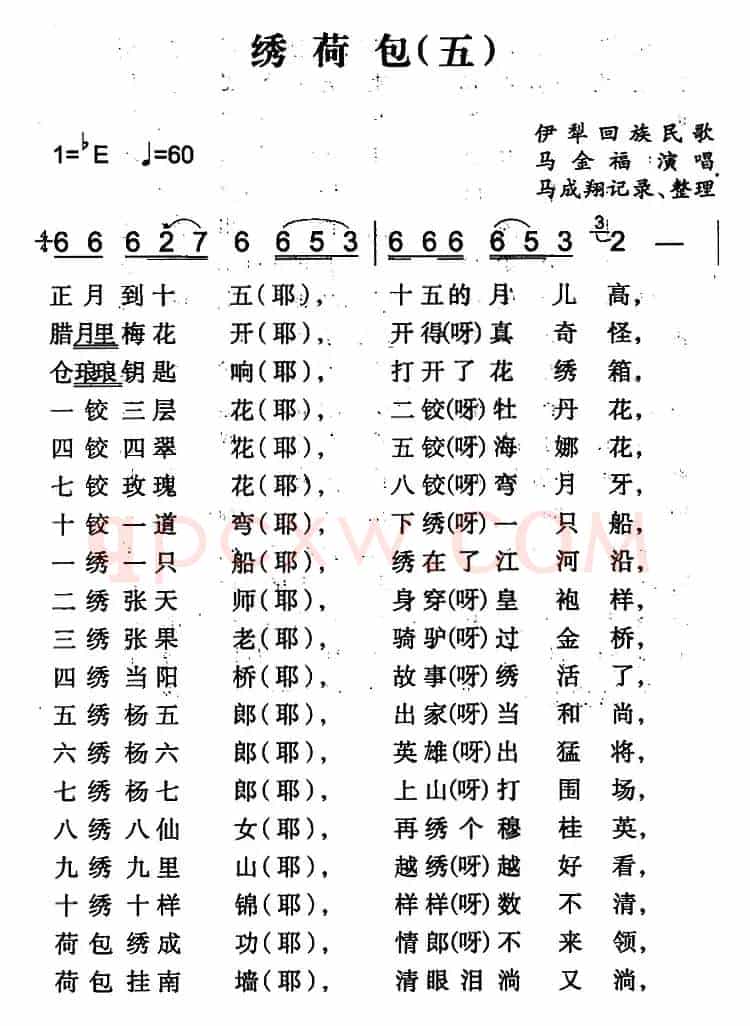 绣荷包(五)
伊犁回族民歌
1=♭E ♩=60
马金福 演唱
马成翔记录、整理
4/4 6 6 6 2 7 6 6 5 3 | 6 6 6 6 5 3 3 2 — |
正月到十五(耶), 十五的月儿高,
腊月里梅花开(耶), 开得(呀)真奇怪,
仓琅琅钥匙响(耶), 打开了花绣箱,
一铰三层花(耶), 二铰(呀)牡丹花,
四铰四翠花(耶), 五铰(呀)海娜花,
七铰玫瑰花(耶), 八铰(呀)弯月牙,
十铰一道弯(耶), 下绣(呀)一只船,
一绣一只船(耶), 绣在了江河沿,
二绣张天师(耶), 身穿(呀)皇袍样,
三绣张果老(耶), 骑驴(呀)过金桥,
四绣当阳桥(耶), 故事(呀)绣活了,
五绣杨五郎(耶), 出家(呀)当和尚,
六绣杨六郎(耶), 英雄(呀)出猛将,
七绣杨七郎(耶), 上山(呀)打围场,
八绣八仙女(耶), 再绣个穆桂英,
九绣九里山(耶), 越绣(呀)越好看,
十绣十样锦(耶), 样样(呀)数不清,
荷包绣成功(耶), 情郎(呀)不来领,
荷包挂南墙(耶), 清眼泪淌又淌,
qpcxw.com